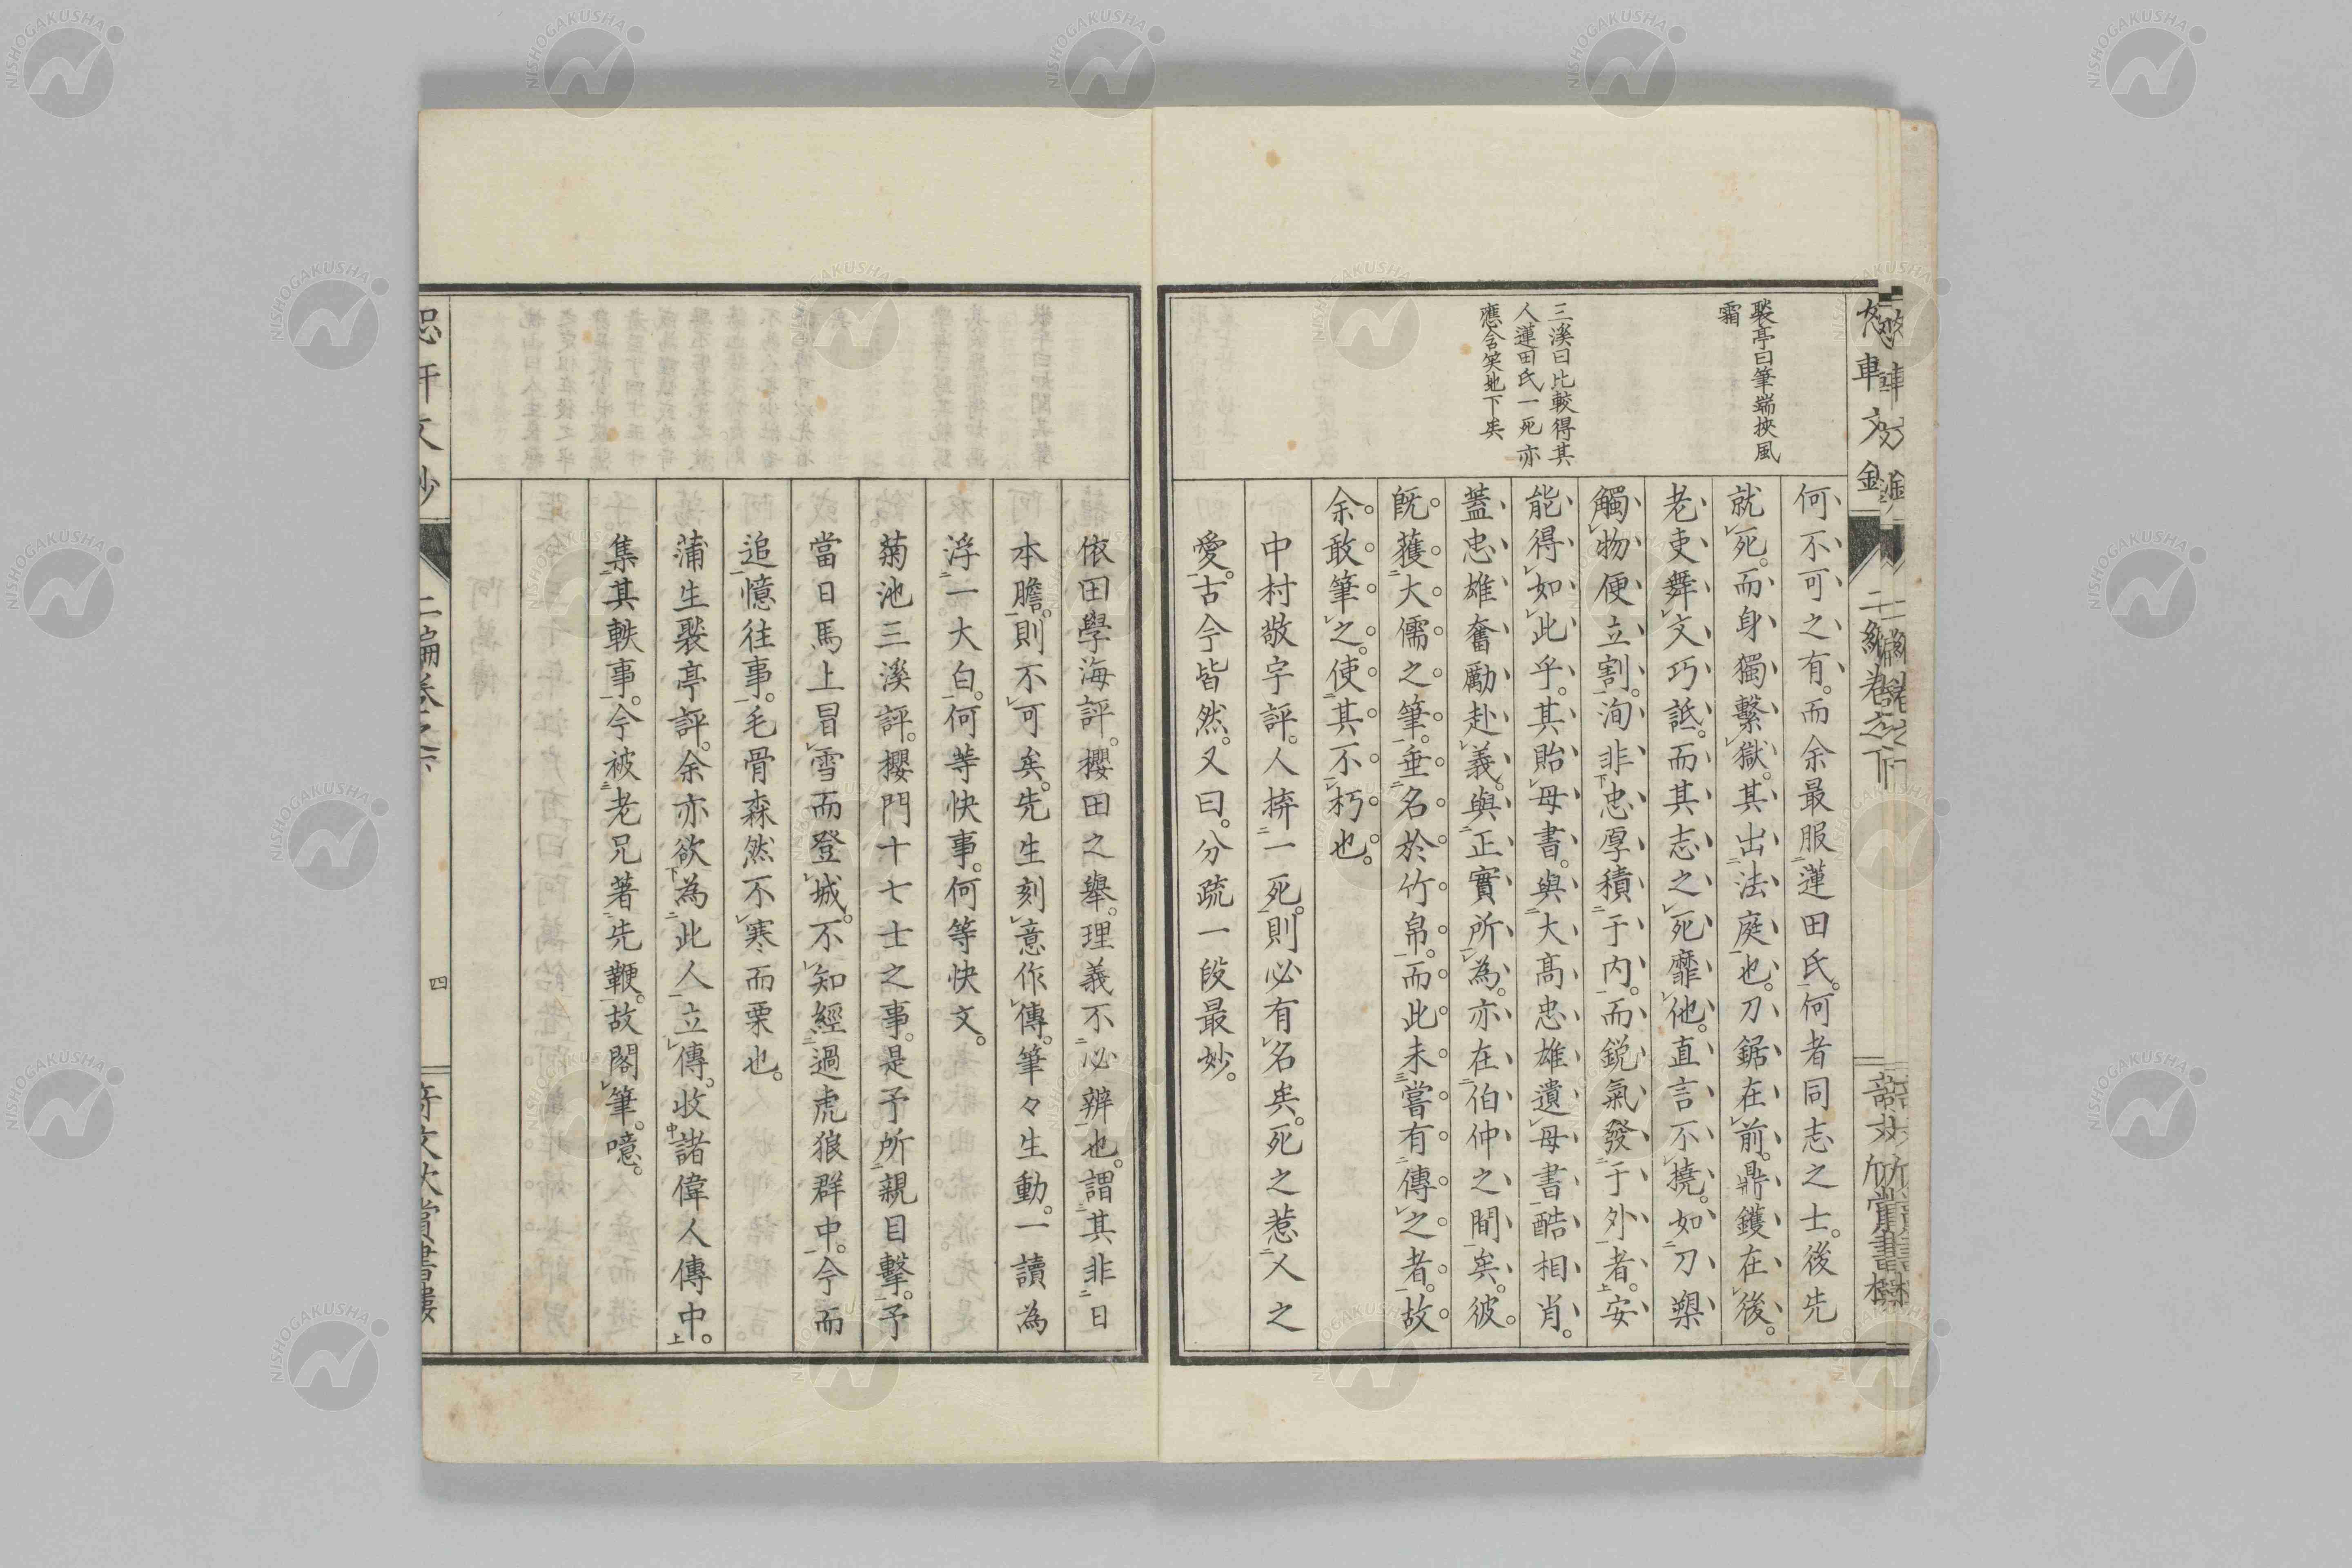 裂亭曰筆端挾風
霜
三溪曰比較得其
人蓮田氏一死亦
應含笑地下矣
何不可之有。而余最服蓮田氏。何者同志之士。後先
就死。而身獨繫獄。其出法庭也。刀鋸在前。鼎鑊在後。
老吏舞文巧詆。而其志之死靡他。直言不撓。如刀槊
觸物便立割。洵非忠厚積于内。而鋭氣發于外者。安
能得如此乎。其貽母書。與大高忠雄遺母書酷相肖。
蓋忠雄奮勵赴義。與正實所為。亦在伯仲之間矣。彼
既獲大儒之筆。垂名於竹帛。而此未嘗有傳之者。故
余敢筆之。使其不朽也。
中村敬宇評。人拚一死。則必有名矣。死之惹人之
愛。古今皆然。又曰。分疏一段最妙。
依田學海評。櫻田之舉。理義不必辨也。謂其非日
本膽。則不可矣。先生刻意作傳。筆々生動。一讀為
浮一大白。何等快事。何等快文。
菊池三溪評。櫻門十七士之事。是予所親目擊。予
當日馬上冒雪而登城。不知經過虎狼群中。今而
追憶往事。毛骨森然不寒而栗也。
蒲生裂亭評。余亦欲為此人立傳。收諸偉人傳中。
集其軼事。今被老兄著先鞭。故閣筆。噫。
二編卷之下
四
NISHOGAKUSHA